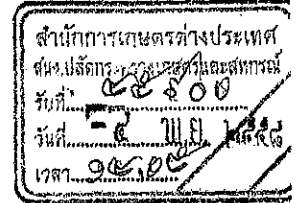 สำนักการเกษตรต่างประเทศ
สนง.ปลัดกระทรวงเกษตรและสหกรณ์
รับที่
วันที่ - ๔ พ.ย. ๒๕๕๘
เวลา